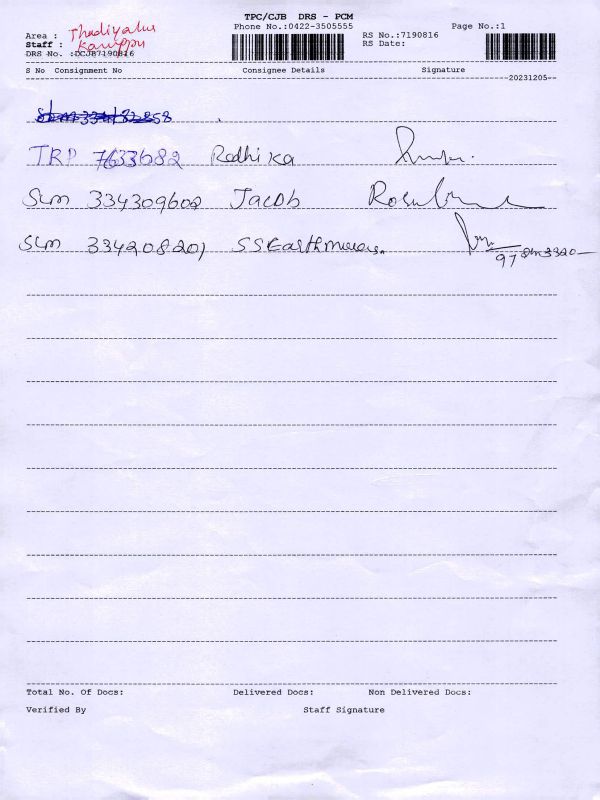 TPC/CJB DRS - PCM
Phone No.:0422-3505555
Page No.:1
Area : Thadiyalur
Staff : Karuppu
DRS No. :DCJB7190816
RS No.:7190816
RS Date:
S No Consignment No Consignee Details Signature
20231205
TRP 7633682 Radhika
SLM 334309602 Jacob
SLM 334208201 SS Earthmovers
Total No. Of Docs: Delivered Docs: Non Delivered Docs:
Verified By Staff Signature